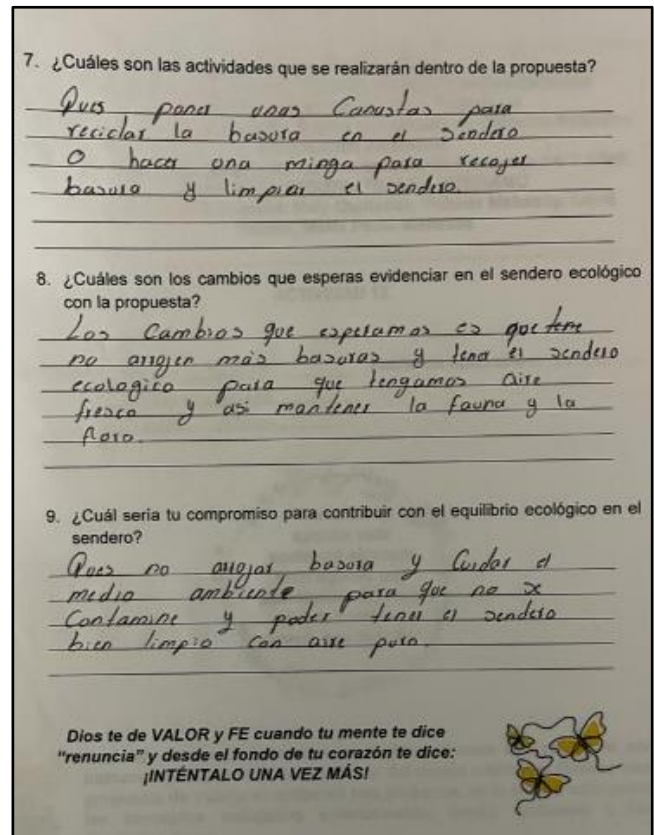 7. ¿Cuáles son las actividades que se realizarán dentro de la propuesta?
Pues poner unas Canastas para
reciclar la basura en el Sendero
O hacer una minga para recojer
basura y limpiar el sendero.
8. ¿Cuáles son los cambios que esperas evidenciar en el sendero ecológico
con la propuesta?
Los Cambios que esperamos es que
no arrojen más basuras y tener el sendero
ecologico para que tengamos aire
fresco y asi mantener la fauna y la
flora.
9. ¿Cuál seria tu compromiso para contribuir con el equilibrio ecológico en el
sendero?
Pues no arrojar basura y Cuidar el
medio ambiente para que no se
Contamine y poder tener el sendero
bien limpio con aire puro.
Dios te de VALOR y FE cuando tu mente te dice
"renuncia" y desde el fondo de tu corazón te dice:
¡INTÉNTALO UNA VEZ MÁS!